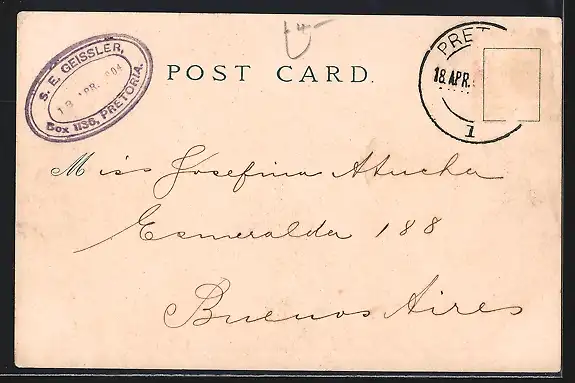 S. E. GEISSLER,
18 APR. 904
Box 1136, PRETORIA.
POST CARD.
PRET
18 APR.
1
Miss Josefina Atucha
Esmeralda 188
Buenos Aires